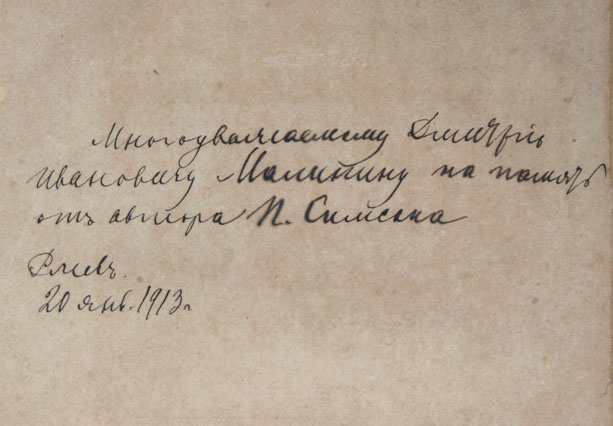 Многоуважаемому Дмитрію
Ивановичу Малинину на память
отъ автора П. Симсона
Ржевъ.
20 янв. 1913 г